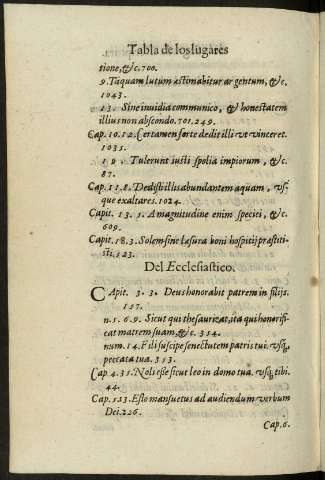 Tabla de los lugares
tione, &c. 700.
9. Táquam lutum æstimabitur argentum, &c.
1043.
13. Sine inuidia communico, & honestatem
illius non abscondo. 701. 249.
Cap. 10. 12. Certamen forte dedit illi vt vinceret.
1031.
19. Tulerunt iusti spolia impiorum, &c.
87.
Cap. 11. 8. Dedisti illis abundantem aquam, vs
que exaltares. 1024.
Capit. 13. 5. A magnitudine enim speciei, &c.
609.
Capit. 18. 3. Solem sine læsura boni hospitij præstiti-
sti. 123.
Del Ecclesiastico.
Capit. 3. 3. Deus honorabit patrem in filijs.
117.
n. 5. 6. 9. Sicut qui thesaurizat, ita qui honorifi-
cat matrem suam, &c. 314.
num. 14. Fili suscipe senectutem patris tui. vsq̃
peccata tua. 313.
Cap. 4. 31. Noli esse sicut leo in domo tua. vsq̃ tibi.
44.
Cap. 5. 13. Esto mansuetus ad audiendum verbum
Dei. 226.
Cap. 6.